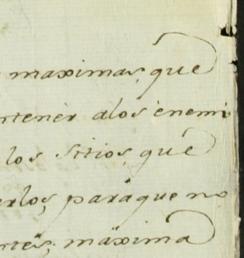 maximas, que
ntener alos enemi
los sitios, que
erlos, paraque no
ntes; maxima